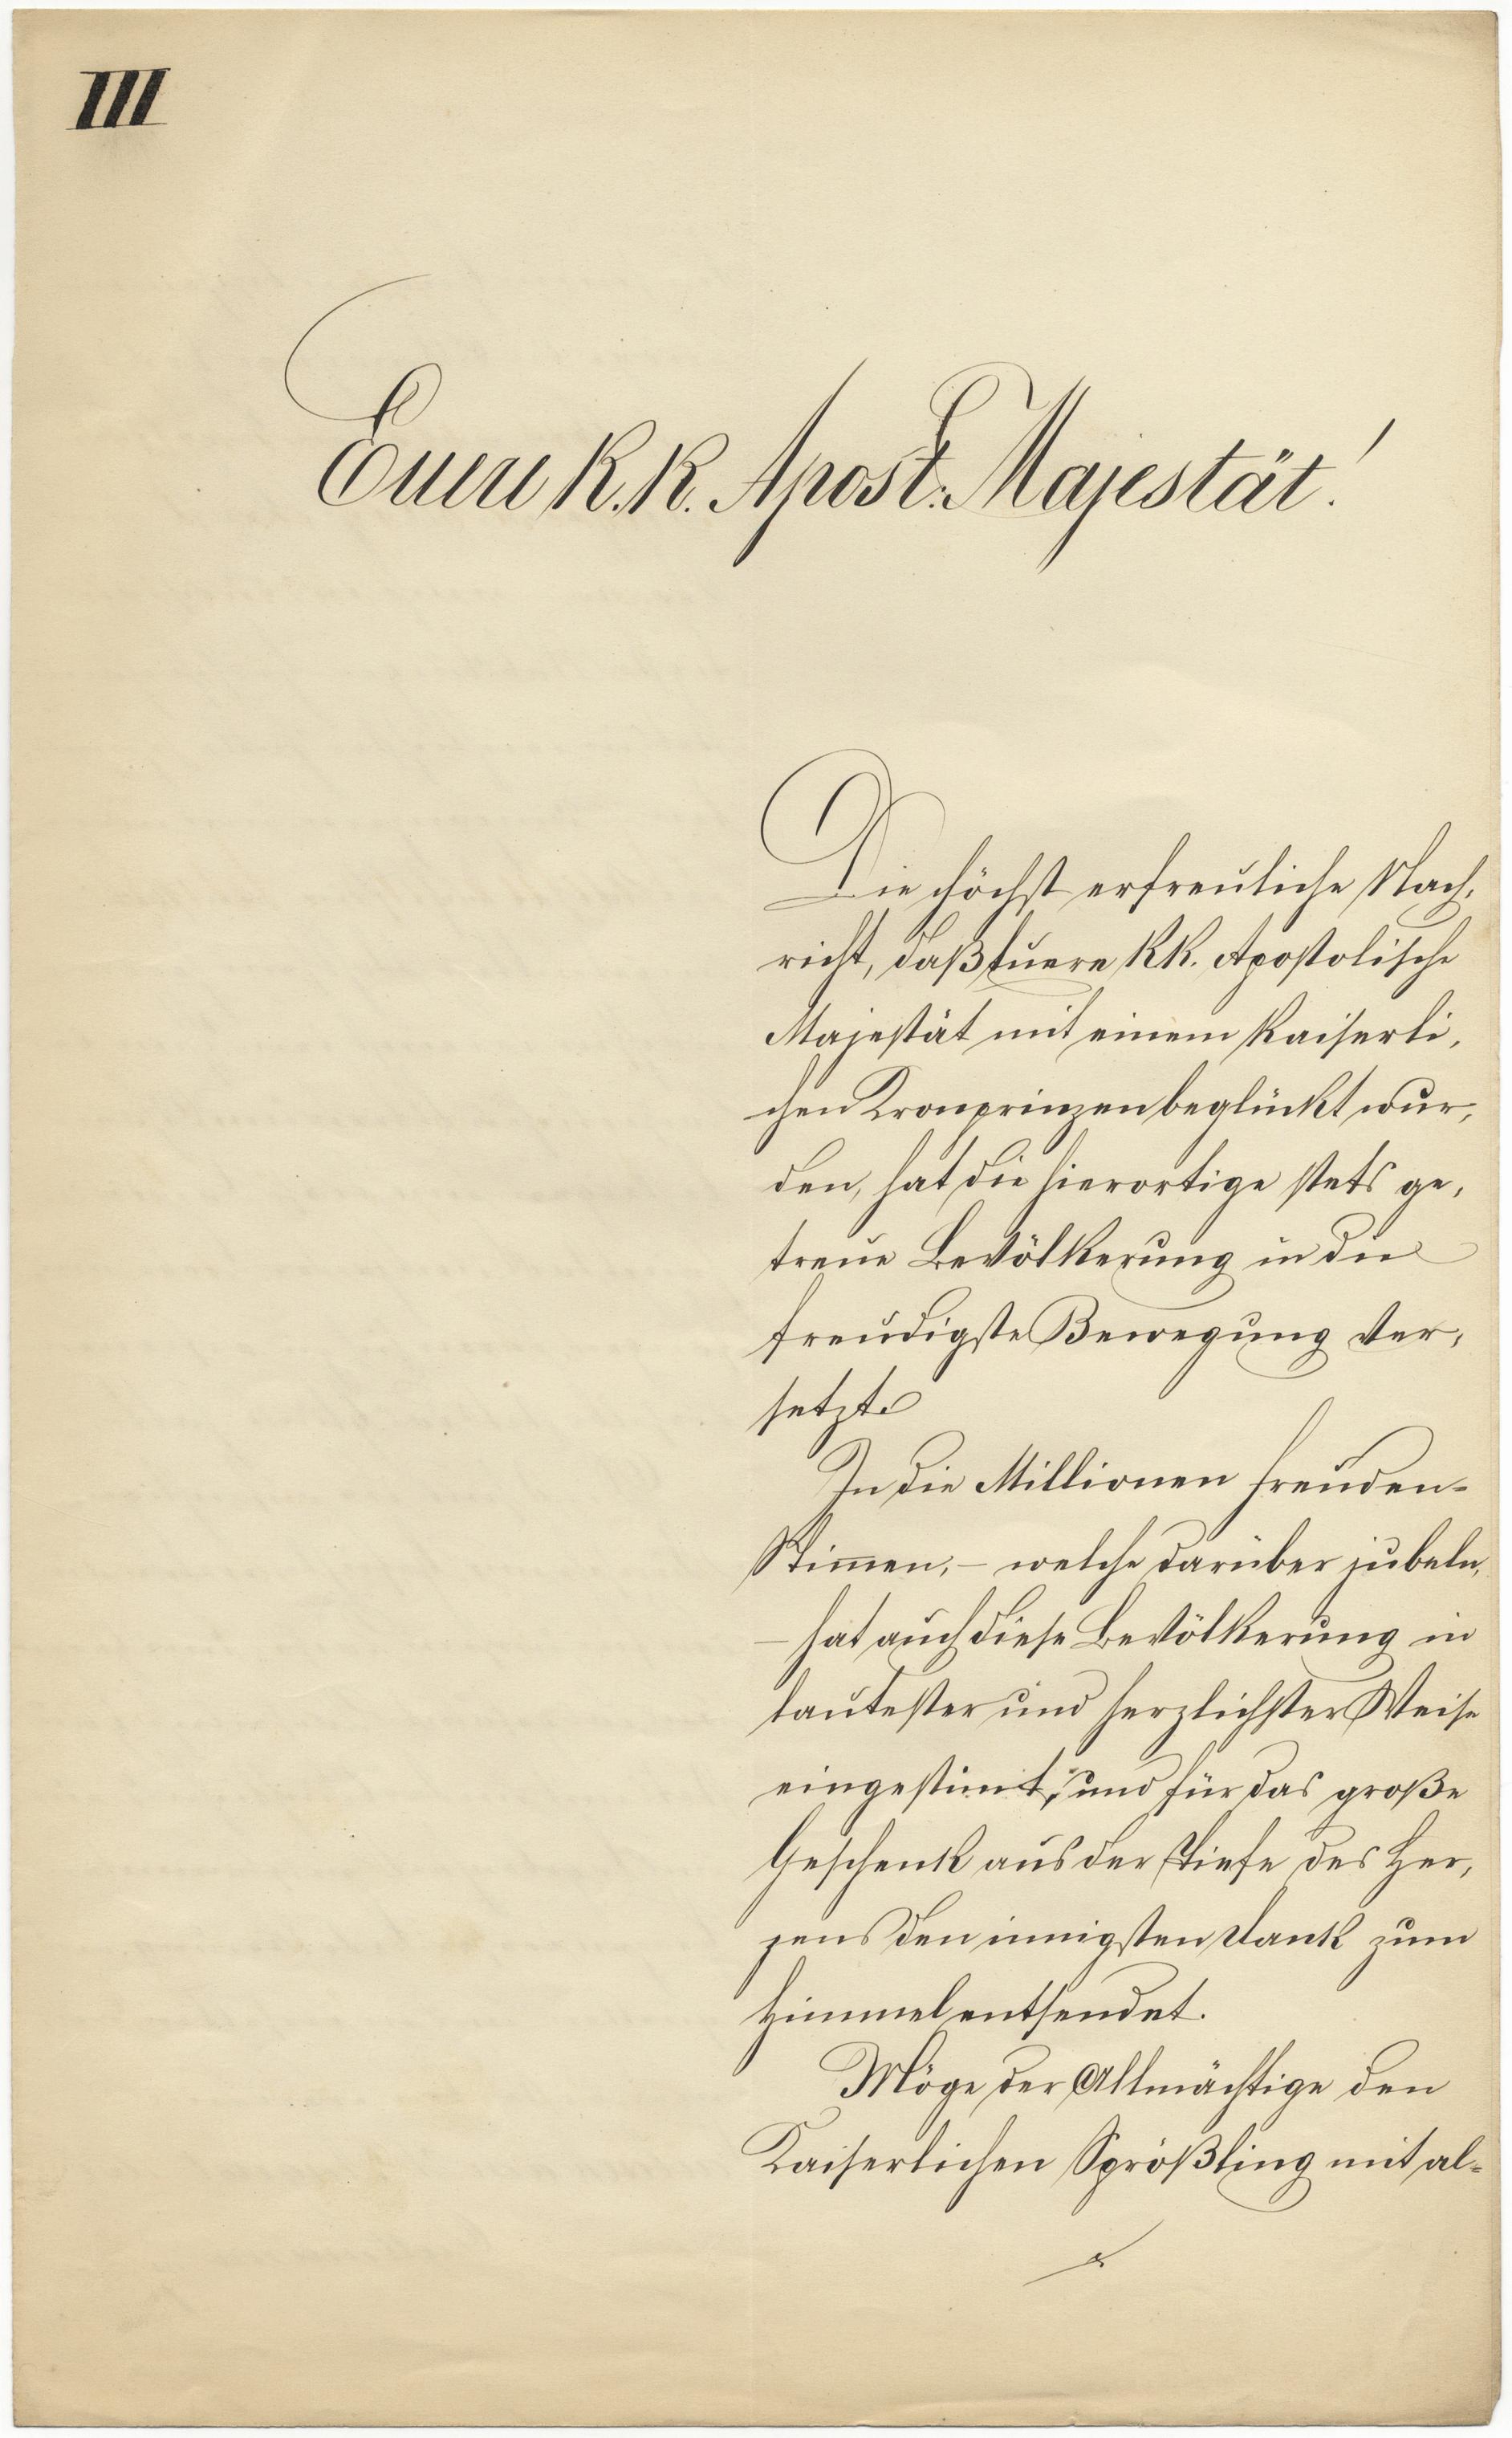 III
Euere K. K. Apost. Majestät!
Die höchst erfreuliche Nach,
richt, daß Euere KK. Apostolische
Majestät mit einem Kaiserli,
chen Kronprinzen beglückt wur,
den, hat die hierortige stets ge,
treue Bevölkerung in die
freudigste Bewegung ver,
setzt.
In die Millionen Freuden-
Stimen, – welche darüber jubeln,
– hat auch diese Bevölkerung in
lautester und herzlichster Weise
eingestimt, und für das große
Geschenk aus der Tiefe des Her,
zens den innigsten Dank zum
Himmel entsendet.
Möge der Allmächtige den
Kaiserlichen Sprößling mit al-